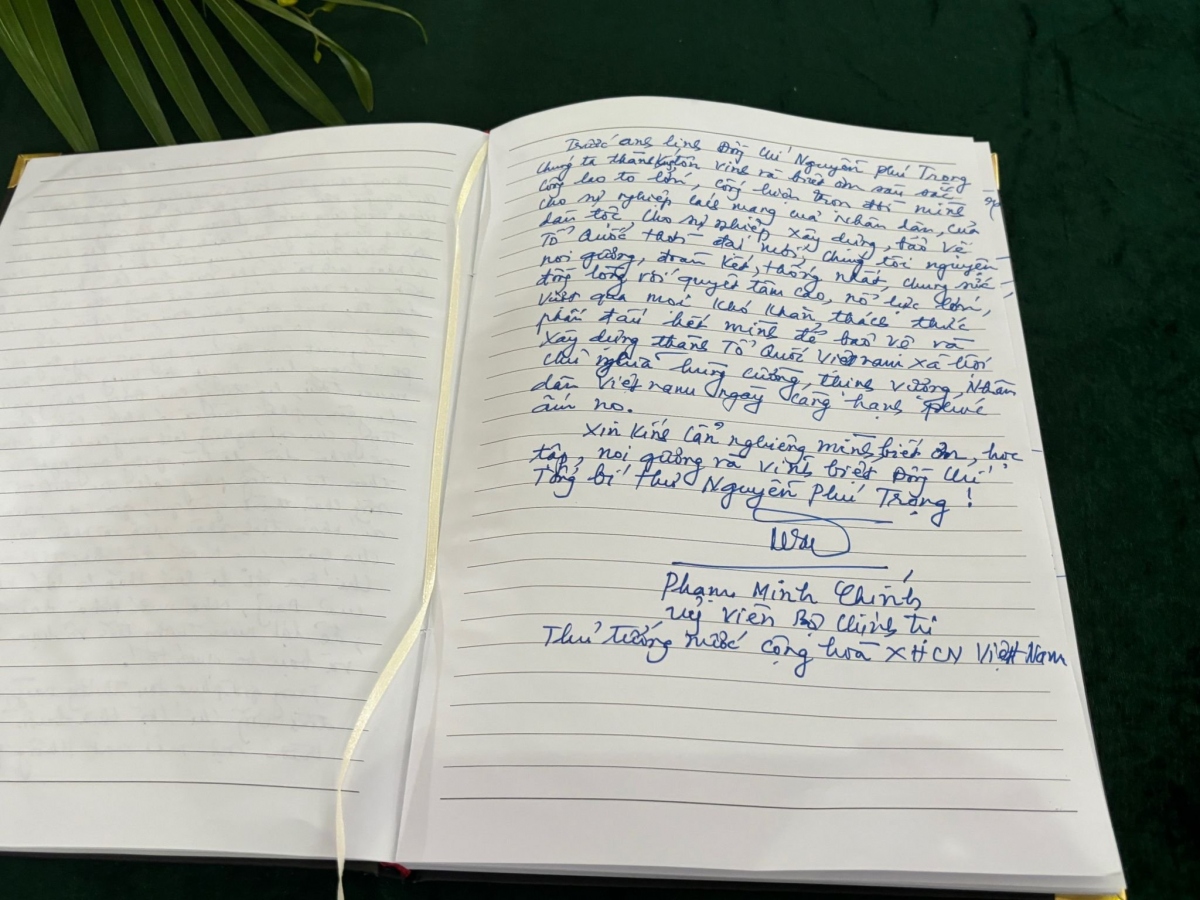 Trước anh linh Đồng chí Nguyễn phú Trọng
chúng ta thành kính tôn vinh và biết ơn sâu sắc
công lao to lớn, cống hiến trọn đời mình
cho sự nghiệp cách mạng của Nhân dân, của
dân tộc, cho sự nghiệp xây dựng, bảo vệ
Tổ Quốc thời đại mới, chúng tôi nguyện
noi gương, đoàn kết, thống nhất, chung sức
đồng lòng với quyết tâm cao, nỗ lực lớn,
vượt qua mọi khó khăn thách thức
phấn đấu hết mình để bảo vệ và
xây dựng thành Tổ Quốc Việt nam xã hội
chủ nghĩa hùng cường, thịnh vượng, Nhân
dân Việt nam ngày càng hạnh phúc
ấm no.
Xin kính cẩn nghiêng mình, biết ơn, học
tập, noi gương và vĩnh biệt Đồng chí
Tổng bí thư Nguyễn Phú Trọng !
Phạm Minh Chính
uỷ viên Bộ chính trị
Thủ tướng nước cộng hoà XHCN Việt Nam